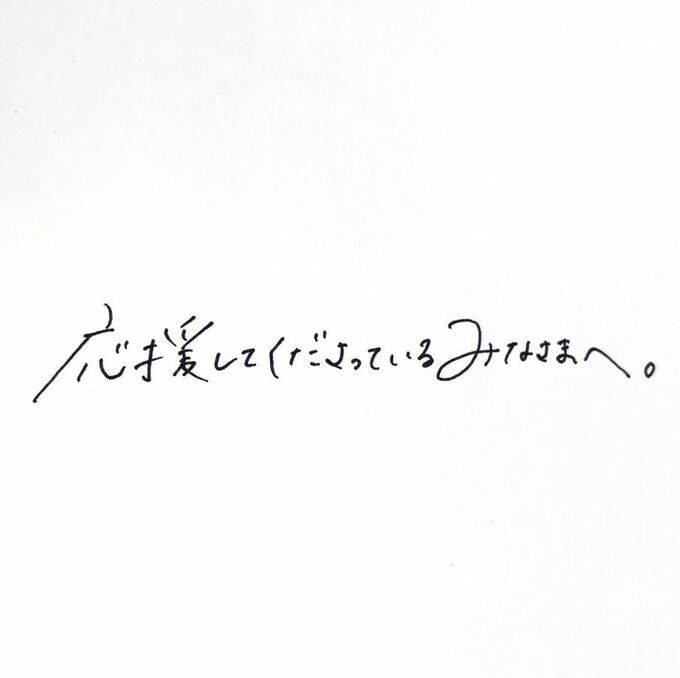 応援してくださっているみなさまへ。